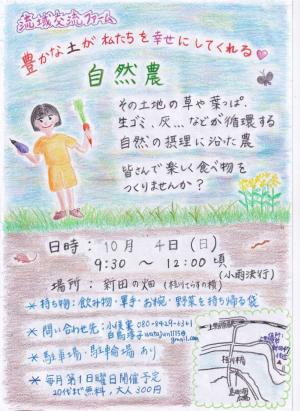 流域交流ファーム
豊かな土が私たちを幸せにしてくれる
自然農
その土地の草や葉っぱ、
生ゴミ、灰...などが循環する
自然の摂理に沿った農
皆さんで楽しく食べ物を
つくりませんか?
日時: 10月 4日(日)
9:30 ~ 12:00頃
(小雨決行)
場所: 新田の畑
*持ち物:飲み物・軍手・お椀・野菜を持ち帰る袋
*問い合わせ先:
080-8429-6361
watajun1115@
gmail.com
*駐車場・駐輪場 あり
*毎月第1日曜日開催予定
20代まで無料, 大人300円